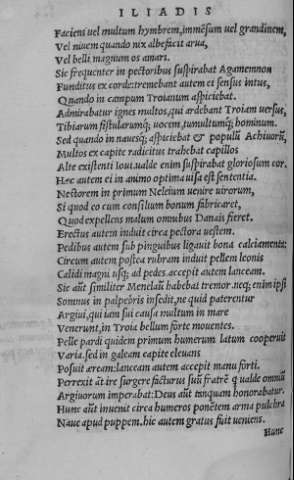 ILIADIS
Facieni uel multum hymbrem, immēsum uel grandinem,
Vel niuem quando nix albeficit arua,
Vel belli magnum os amari.
Sic frequenter in pectoribus suspirabat Agamemnon
Funditus ex corde: tremebant autem ei sensus intus,
Quando in campum Troianum aspiciebat.
Admirabatur ignes multos, qui ardebant Troiam uersus,
Tibiarum fistularumq; uocem, tumultumq; hominum.
Sed quando in nauesq; aspiciebat & populū Achiuorū,
Multos ex capite radicitus trahebat capillos
Alte existenti Ioui. ualde enim suspirabat gloriosum cor.
Hec autem ei in animo optima uisa est sententia.
Nectorem in primum Neleium uenire uirorum,
Si quod eo cum consilium bonum fabricaret,
Quod expellens malum omnibus Danais fieret.
Erectus autem induit circa pectora uestem.
Pedibus autem sub pinguibus ligauit bona calciamenta:
Circum autem postea rubram induit pellem leonis
Calidi magni usq; ad pedes. accepit autem lanceam.
Sic aūt similiter Menelaū habebat tremor. neq; enim ipsi
Somnus in palpebris insedit, ne quid paterentur
Argiui, qui iam sui causa multum in mare
Venerunt, in Troia bellum forte mouentes.
Pelle pardi quidem primum humerum latum cooperuit
Varia. sed in galeam capite eleuans
Posuit aream: lanceam autem accepit manu forti.
Perrexit āt ire surgere facturus suū fratrē q ualde omniū
Argiuorum imperabat: Deus aūt tanquam honorabatur.
Hunc aūt inuenit circa humeros ponētem arma pulchra
Naue apud puppem. hic autem gratus fuit ueniens.
Hunc